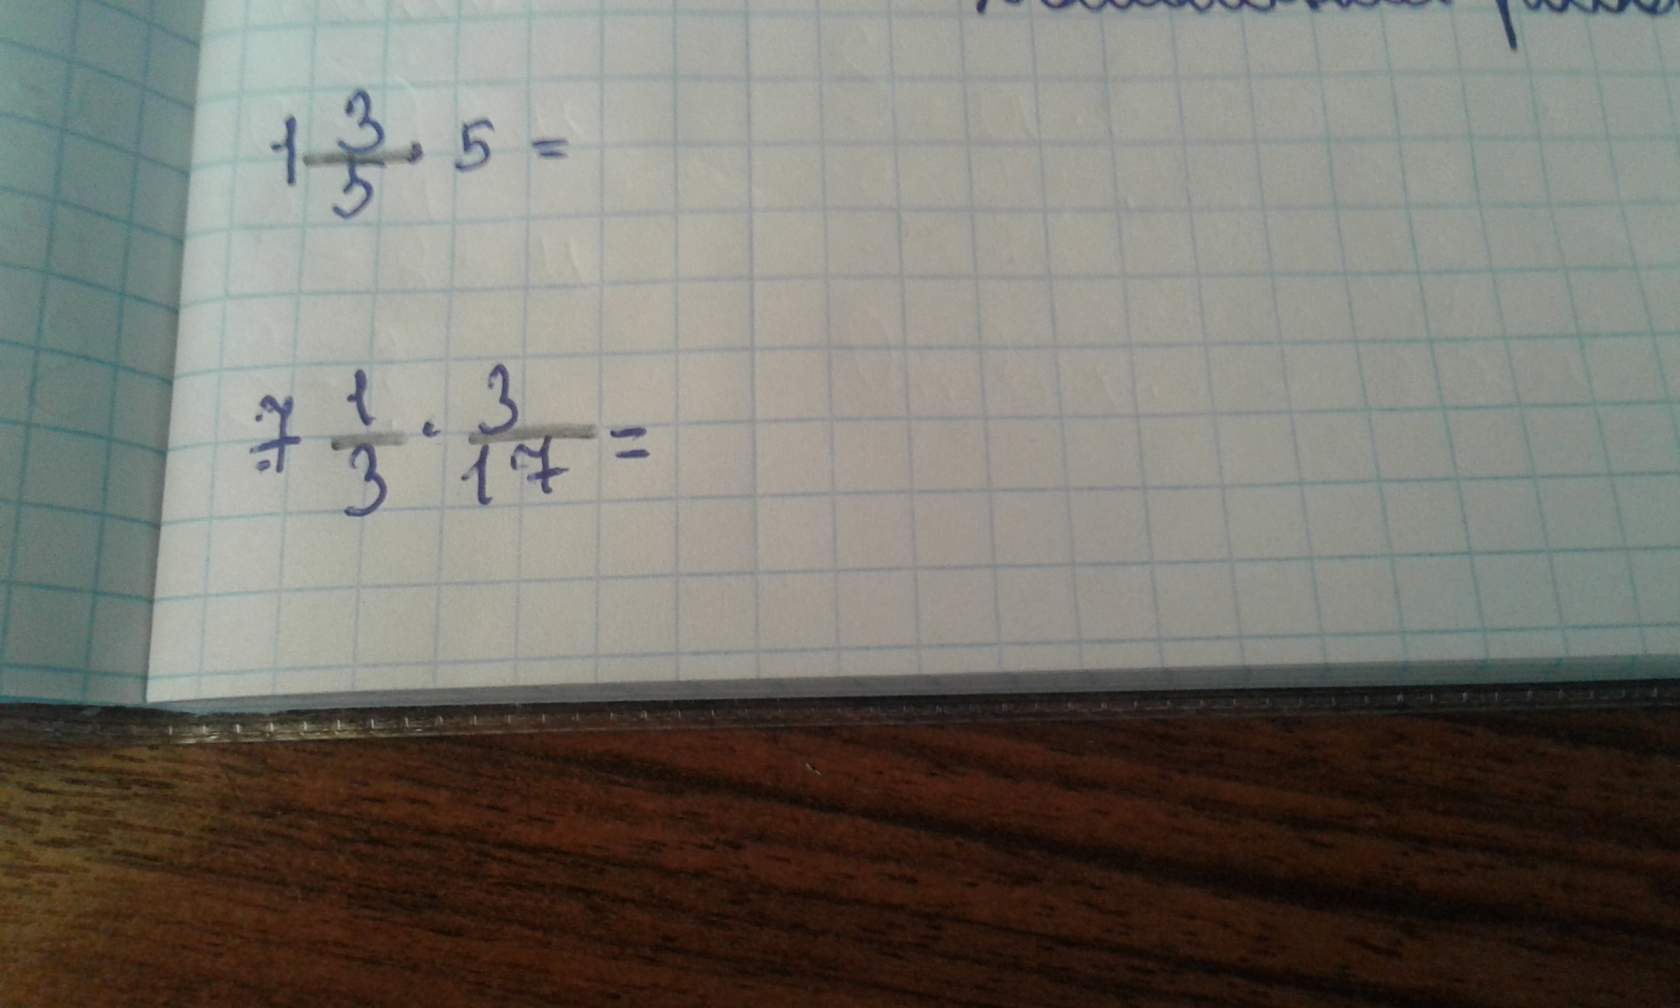 1 3/5 · 5 =
7 1/3 · 3/17 =